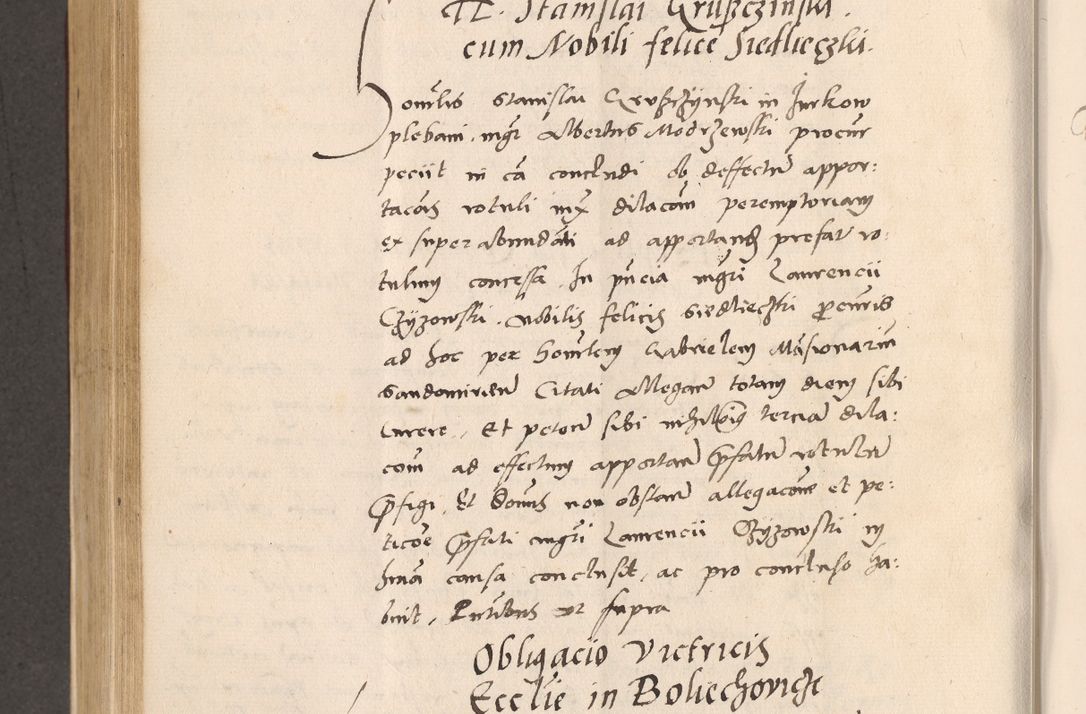 Tr. Stanislai Gruszczinski.
cum Nobili felice Siedlieczki.
Honorabilis Stanislai Gruszczynski in Zurkow
plebani, mgr Albertus Modrzewski procur
peciit in ca concludi ob deffectum appor:
tacois rotuli iux dilacom peremptoriam
ex super abundati ad apportand prefat ro:
tulum concessa. In pncia mgri Laurencii
Czyzowski. Nobilis felicis Siedlieczki procuris
ad hoc per honorabilem Gabrielem Mansionarium
Sandomirien Citati Allegan totam diem sibi
currere. Et peten sibi nihilominus terciam dila:
com ad effectum apportan prefatum rotulum
prefigi. Et Domis non obstan allegacone et pe:
ticoe prefati mgri Laurencii Czyzowski in
hmoi causa conclusit, ac pro concluso ha:
buit, Pntibus ut supra
Obligacio Victricis
Ecclie in Boliechovicze